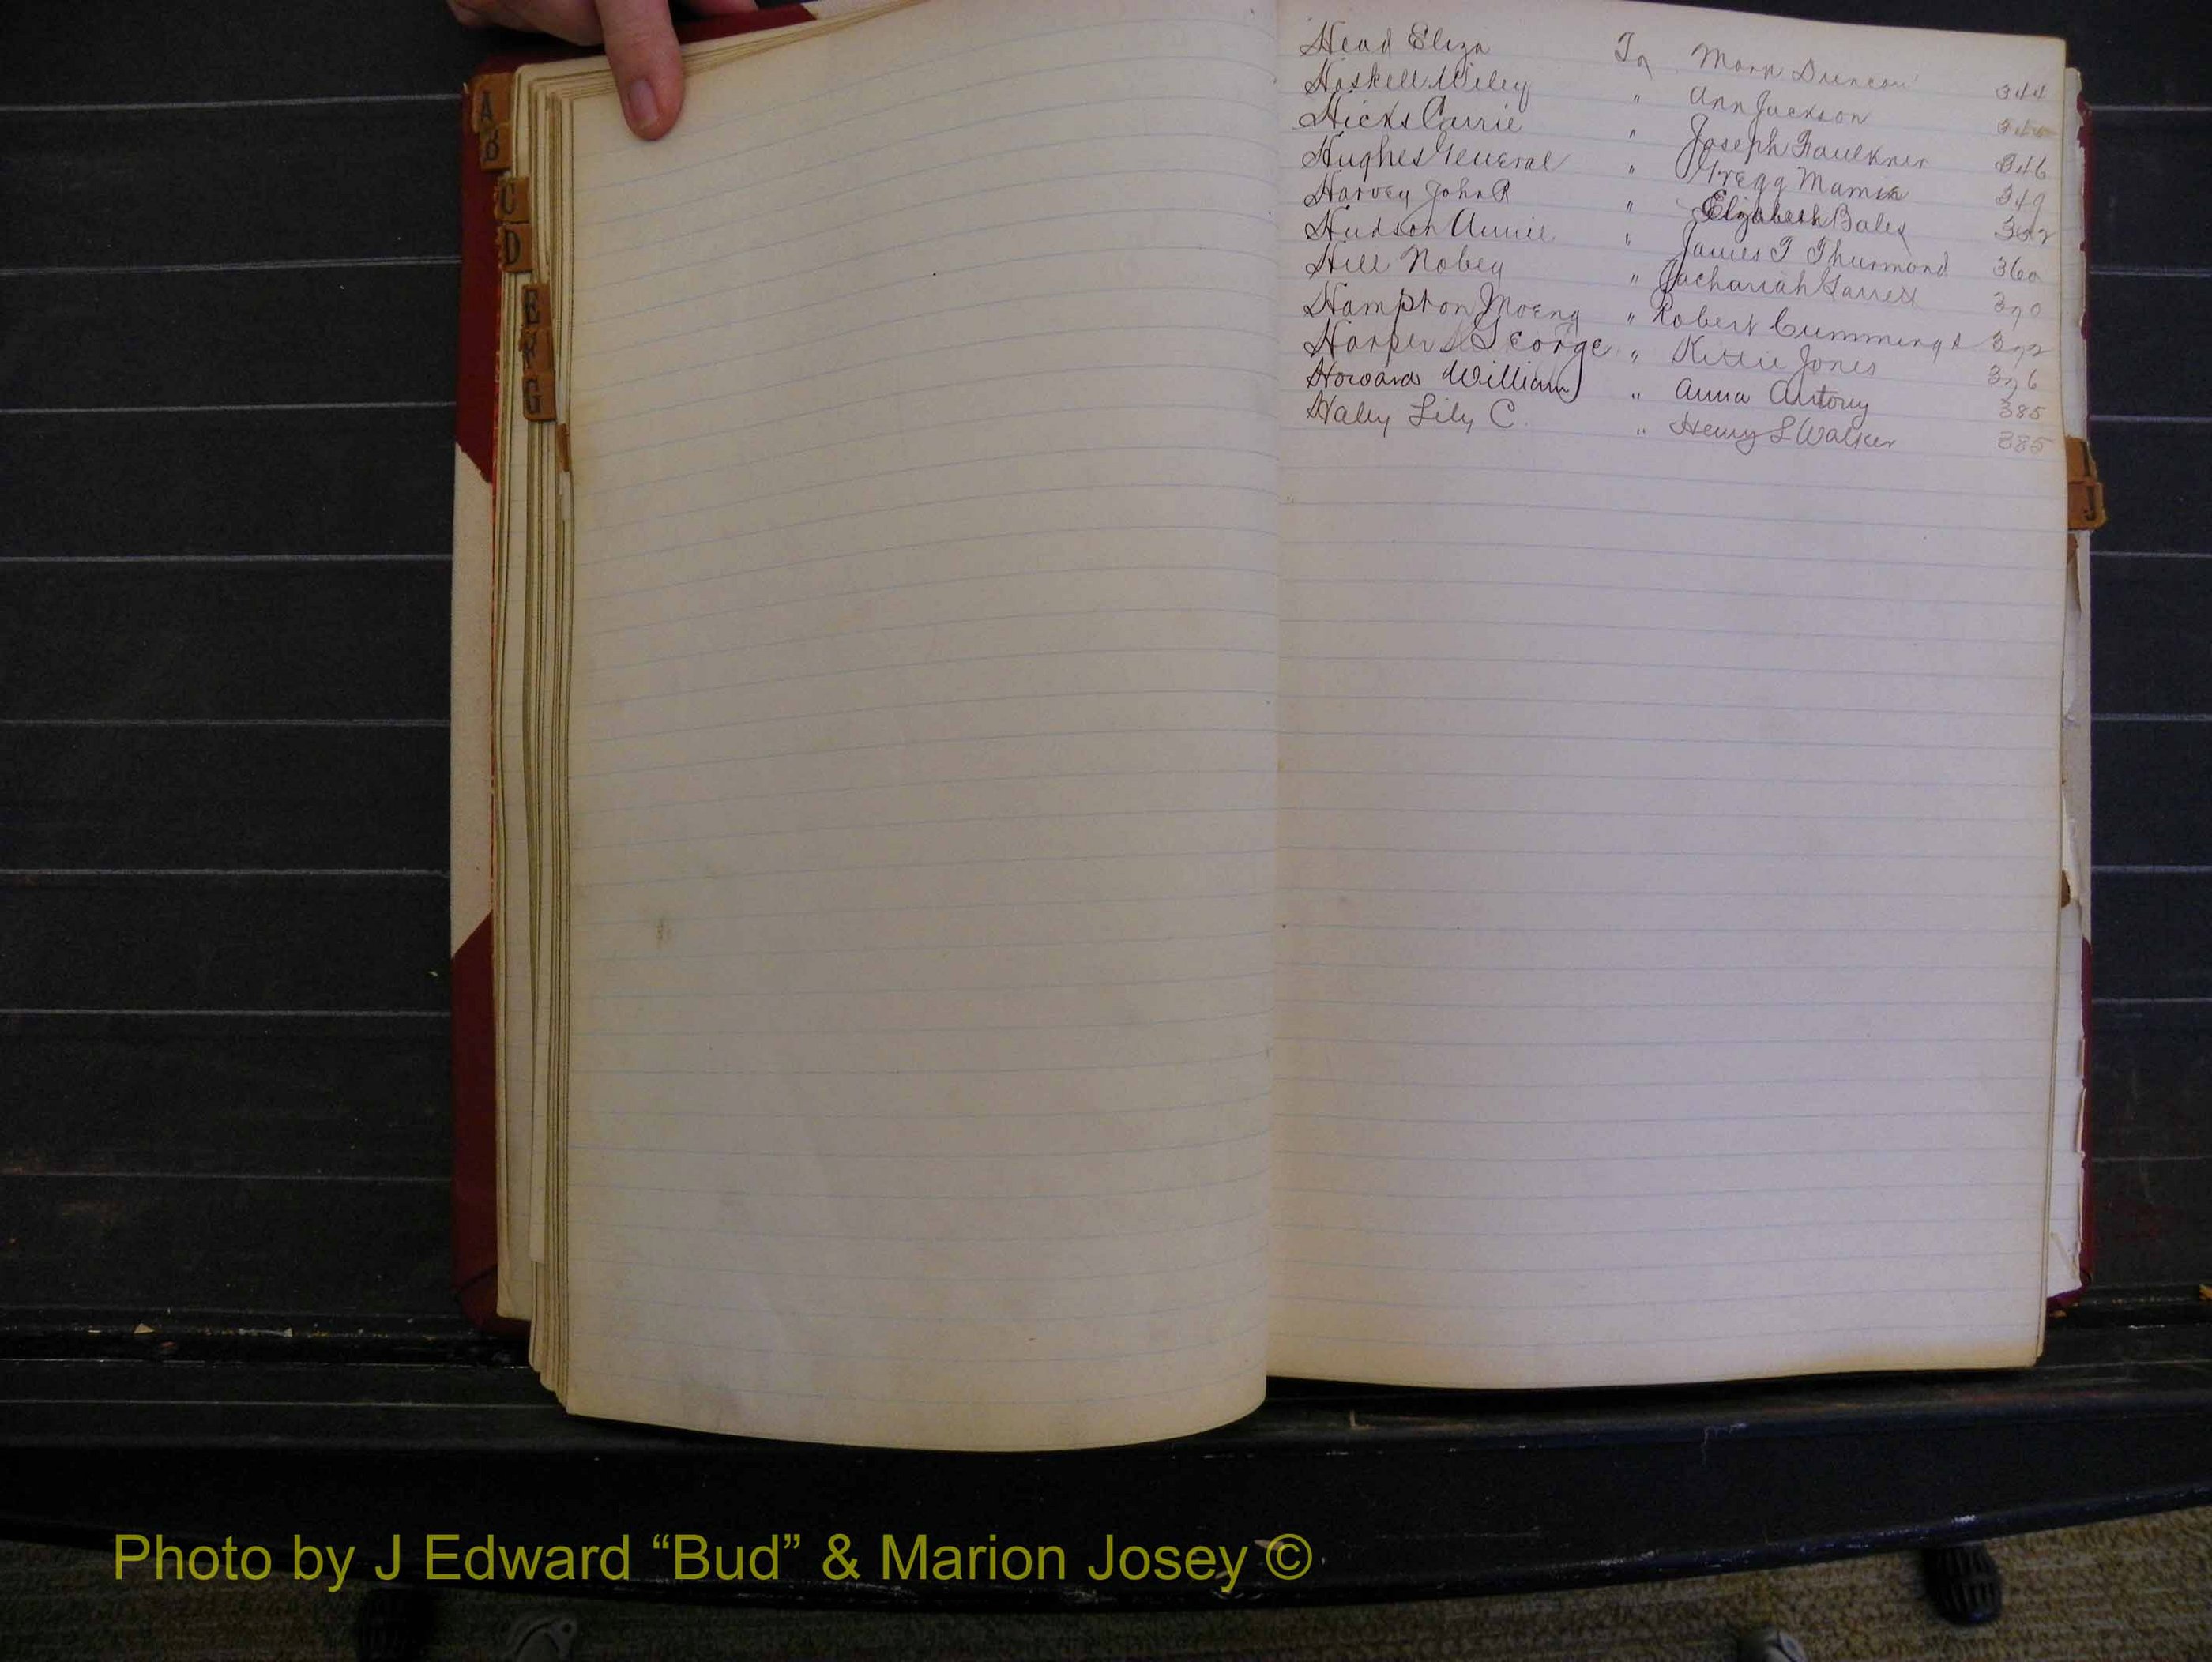 A
B
C
D
E
F
G
Head Eliza To Duncan 344
Haskell Wiley " Ann Jackson
Hicks Carrie " Joseph Faulkner 346
Hughes General " Gregg Mamie 349
Harvey John R " Elizabeth Bales
Hudson Annie " James T Thurmond 360
Hill Nobey " Zachariah Garrett 370
Hampton " Robert Cummings 372
Harper George " Kittie Jones 376
Howard William " Anna Antony 385
Haley Lily C. " Henry L Walker 385
I
J
Photo by J Edward “Bud” & Marion Josey ©